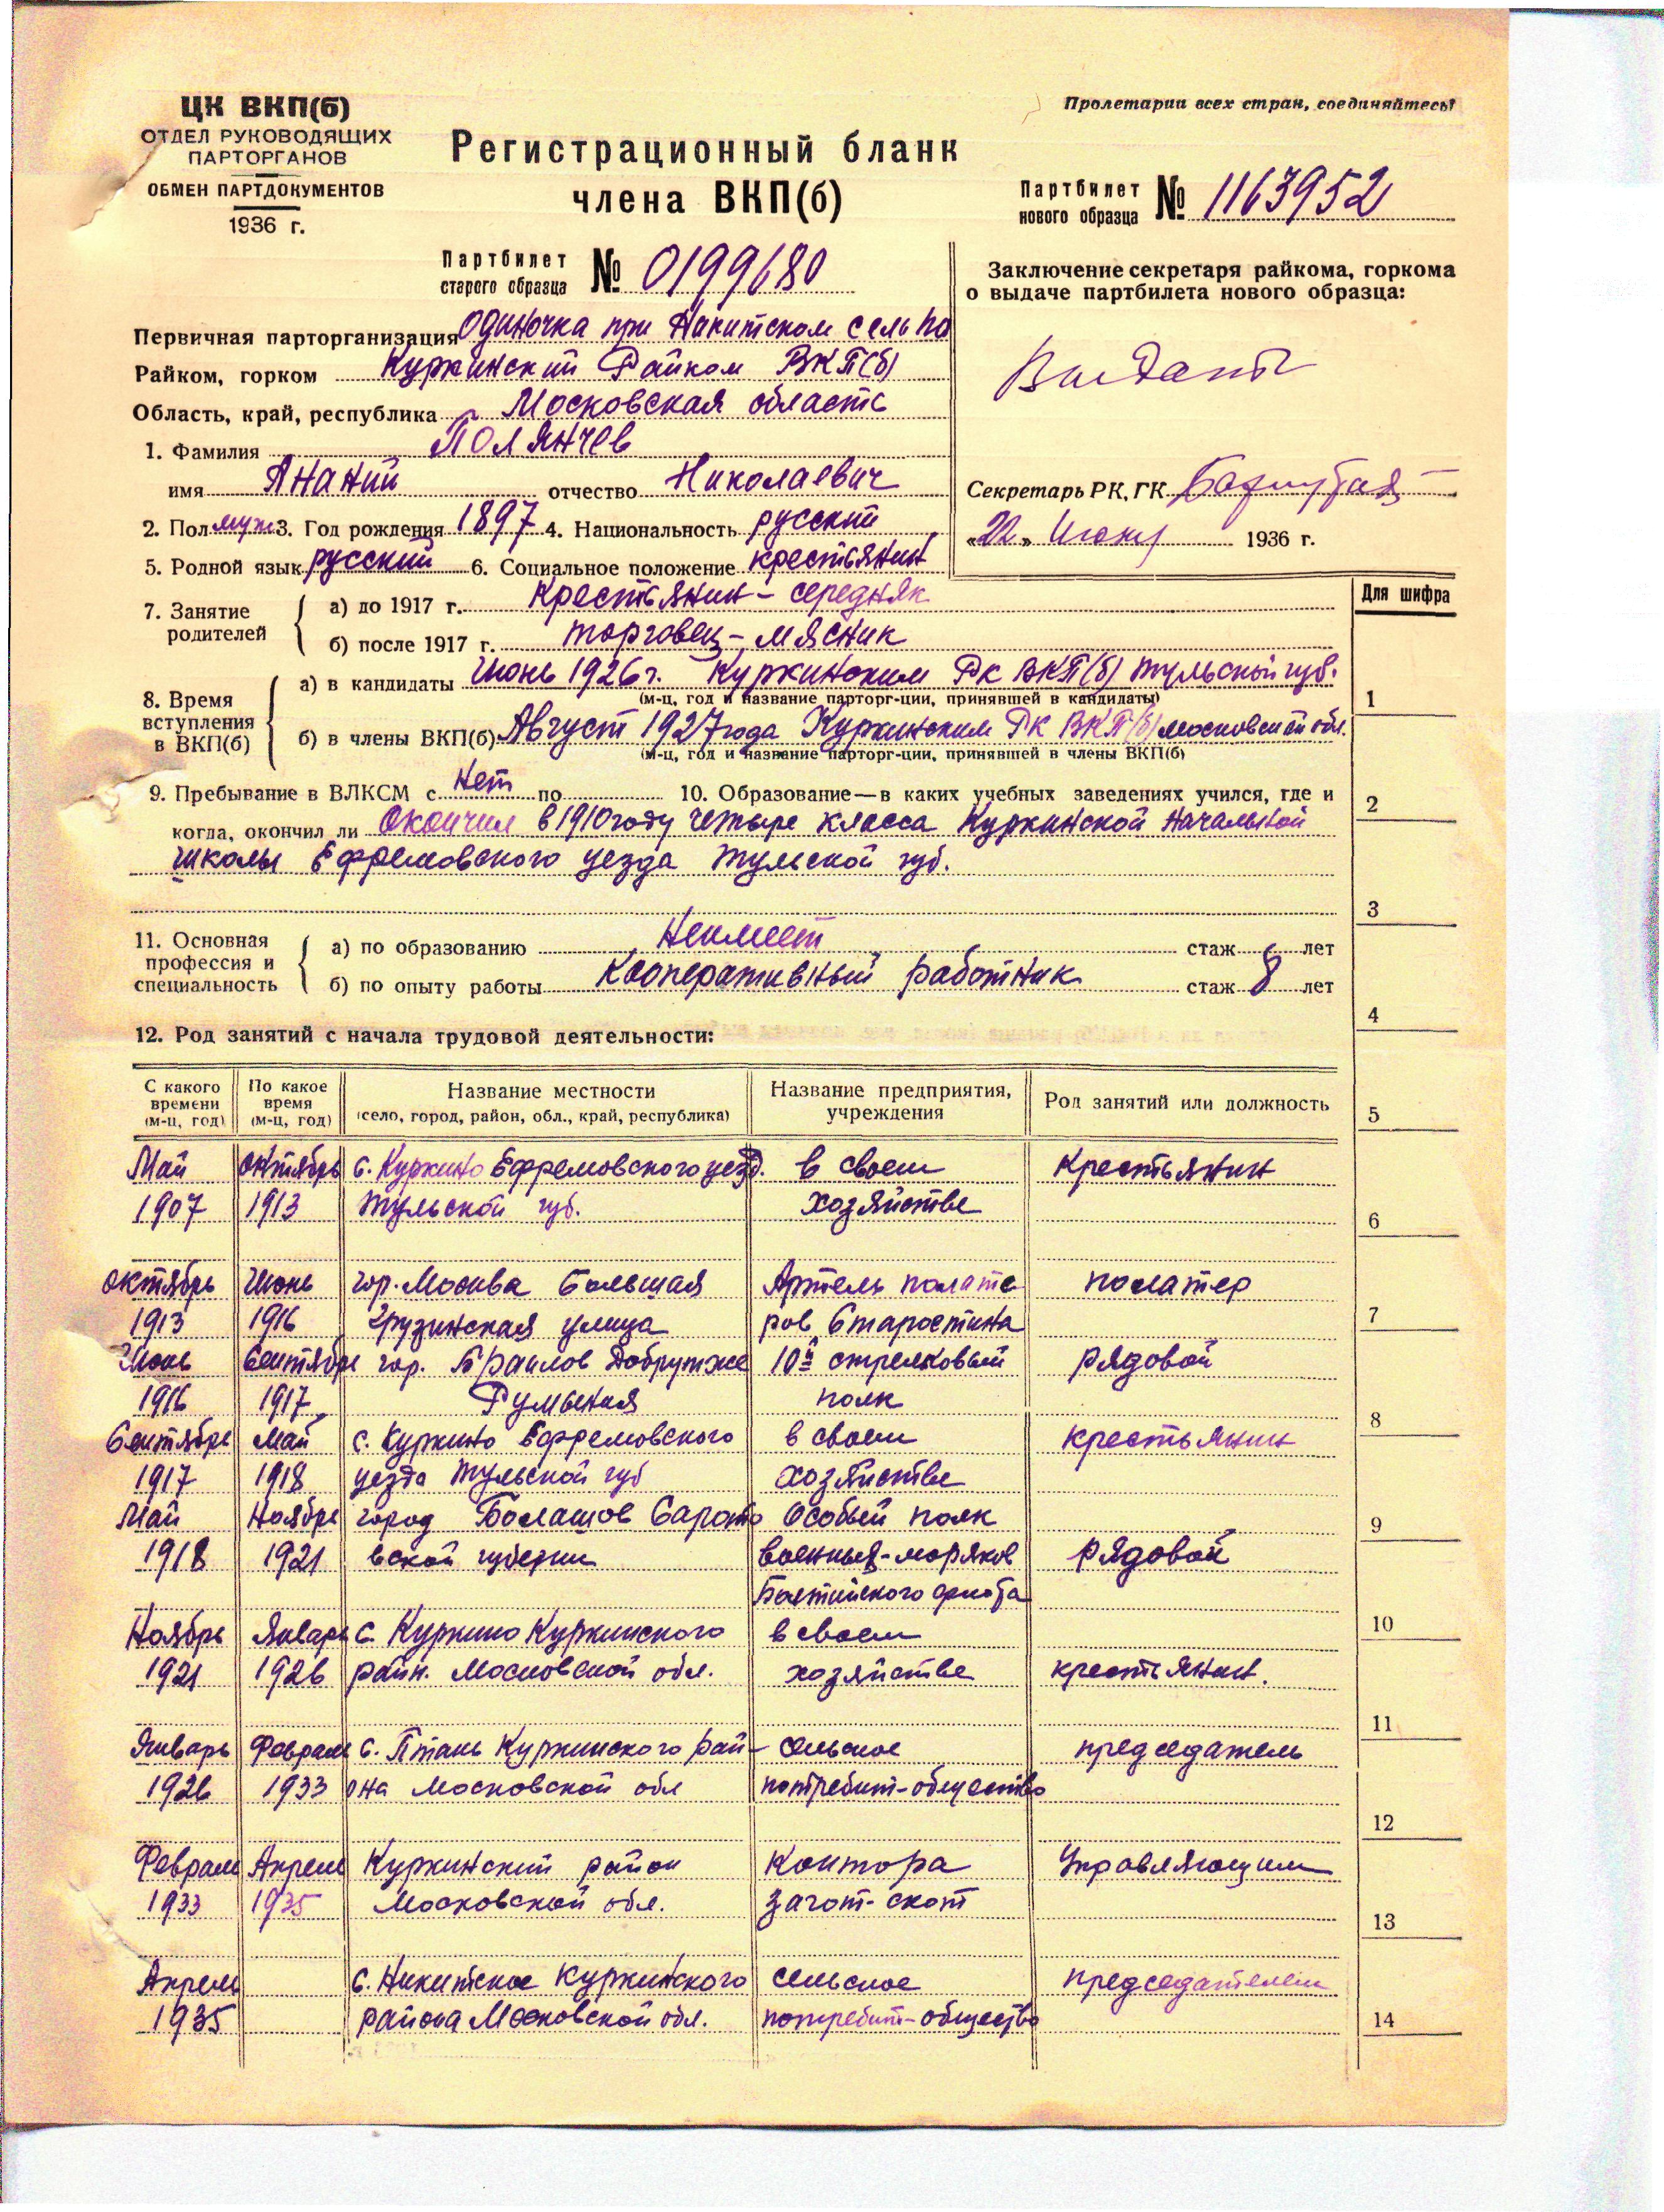 ЦК ВКП(б)
ОТДЕЛ РУКОВОДЯЩИХ
ПАРТОРГАНОВ
ОБМЕН ПАРТДОКУМЕНТОВ
1936 г.
Пролетарии всех стран, соединяйтесь!
Регистрационный бланк
члена ВКП(б)
Партбилет нового образца № 1163952
Партбилет старого образца № 0199680
Заключение секретаря райкома, горкома
о выдаче партбилета нового образца:
Выдать
Секретарь РК, ГК
«22» Июня 1936 г.
Первичная парторганизация Одиночка при Никитском сельпо
Райком, горком Куркинский Райком ВКП(б)
Область, край, республика Московская область
1. Фамилия Полянчев
имя Ананий отчество Николаевич
2. Пол муж 3. Год рождения 1897 4. Национальность русский
5. Родной язык русский 6. Социальное положение крестьянин
7. Занятие родителей
а) до 1917 г. Крестьянин - середняк
б) после 1917 г. торговец - мясник
Для шифра
8. Время вступления в ВКП(б)
а) в кандидаты Июнь 1926 г. Куркинским Рк ВКП(б) Тульской губ.
(м-ц, год и название парторг-ции, принявшей в кандидаты)
б) в члены ВКП(б) Август 1927 года Куркинским РК ВКП(б) московской обл.
(м-ц, год и название парторг-ции, принявшей в члены ВКП(б)
9. Пребывание в ВЛКСМ с нет по 10. Образование—в каких учебных заведениях учился, где и
когда, окончил ли Окончил в 1910 году четыре класса Куркинской Начальной
школы Ефремовского уезда Тульской губ.
11. Основная профессия и специальность
а) по образованию Неимеет стаж лет
б) по опыту работы Кооперативный работник стаж 8 лет
12. Род занятий с начала трудовой деятельности:
С какого времени (м-ц, год) По какое время (м-ц, год) Название местности (село, город, район, обл., край, республика) Название предприятия, учреждения Род занятий или должность
Май октябрь с. Куркино Ефремовского уезд. в своем Крестьянин
1907 1913 Тульской губ. хозяйстве
октябрь Июнь гор. Москва Большая Артель полате полатер
1913 1916 Грузинская улица ров Старостина
Июнь Сентябрь гор. Браилов Добрутже 10й стрелковый рядовой
1916 1917 Румыния полк
Сентябрь Май с. Куркино Ефремовского в своем крестьянин
1917 1918 уезда Тульской губ хозяйстве
Май Ноябрь город Болашов Сарато Особый полк
1918 1921 вской губернии военных-моряков рядовой
Балтийского флота
Ноябрь Январь с. Куркино Куркинского в своем
1921 1926 райн. Московской обл. хозяйстве крестьянин.
Январь Февраль с. Птань Куркинского рай- сельское председатель
1926 1933 она Московской обл потребит-общество
Февраль Апрель Куркинский район Контора Управляющим
1933 1935 Московской обл. загот-скот
Апрель с. Никитское Куркинского сельское председателем
1935 района Московской обл. потребит-общество
1
2
3
4
5
6
7
8
9
10
11
12
13
14